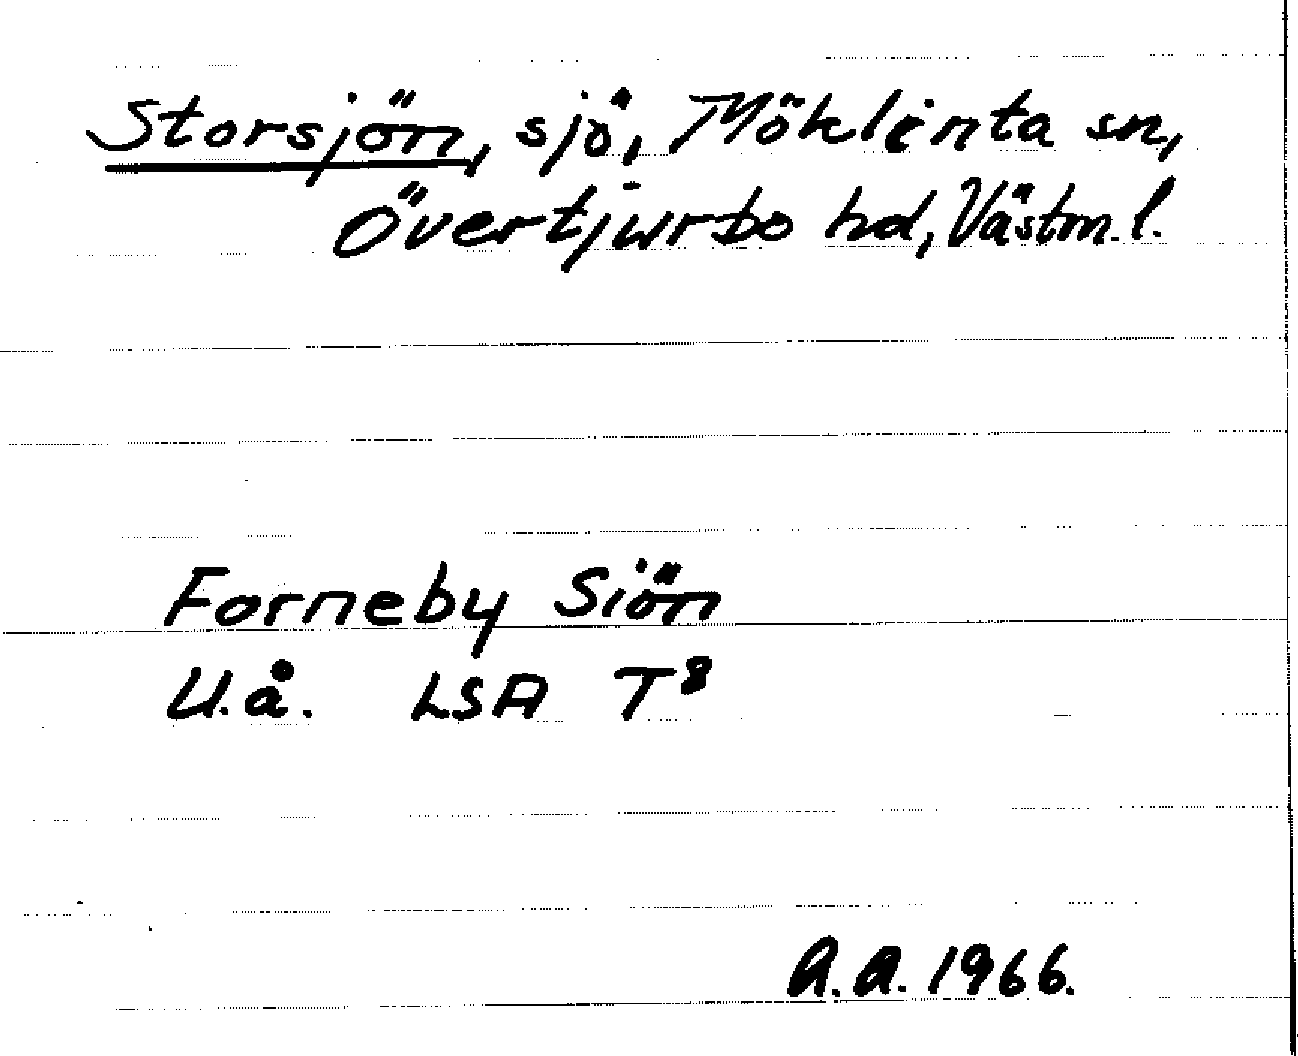 Storsjön, sjö, Möklinta sn,
Övertjurbo hd, Västm. l.
Forneby Siön
U.å. LSA T⁸
A.A. 1966.